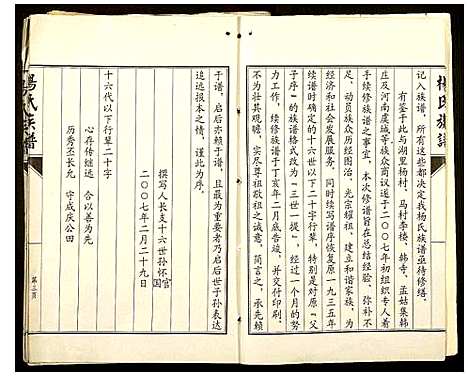 杨氏族谱
记入族谱，所有这些都决定我杨氏族谱亟待修缮。
有鉴于此与湖里杨村、马村李楼、韩寺、孟姑集韩
庄及河南虞城等族众商议遂于二00七年初组织专人着
手续修族谱之事宜，本次修谱旨在总结经验、弥补不
足，动员族众历经图治，光宗耀祖，建立和谐家族，为
经济和社会发展服务，同时续写谱序恢复原一九三五年
续谱时确定的十六世以下二十字行辈，特别是对原“父
子序”的族谱格式更改为“三世一提”，经过一个月的努
力工作，续修族谱于丁亥年二月底告竣，并交付印刷。
不为壮其观瞻，实尽尊祖敬祖之诚意，简言之，承先赖
于谱，启后亦赖于谱，且最为重要者乃启后世子孙表达
追远报本之情，谨此为序。
撰写人长支十六世孙怀官
国
二00七年二月二十九日
十六代以下行辈二十字
心存传继远 合以善为先
历秀云长允 守成庆公田
杨氏族谱
第三页